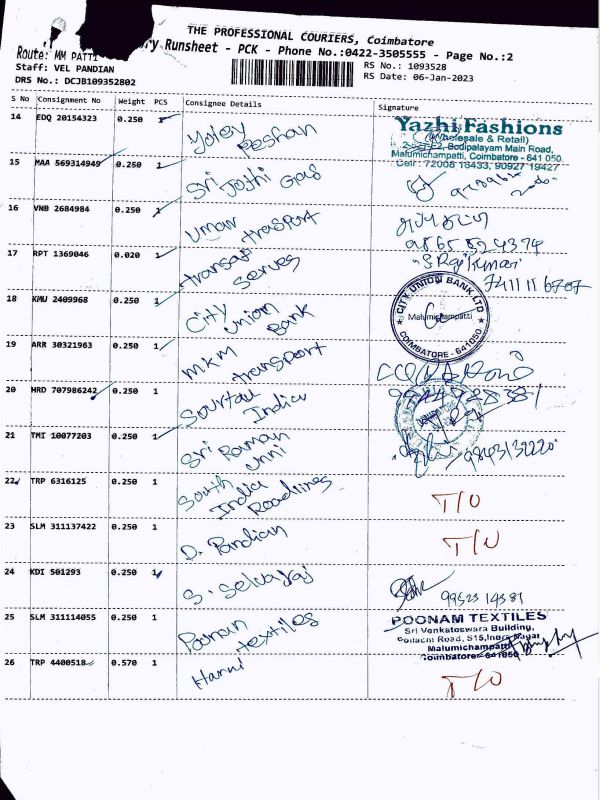 THE PROFESSIONAL COURIERS, Coimbatore
Runsheet - PCK - Phone No.:0422-3505555 - Page No.:2
Route: MM PATTI
Staff: VEL PANDIAN
DRS No.: DCJB109352802
RS No.: 1093528
RS Date: 06-Jan-2023
S No Consignment No Weight PCS Consignee Details Signature
14 EDQ 20154323 0.250 1
Yazhi Fashions
(Wholesale & Retail)
Bodipalayam Main Road,
Malumichampatti, Coimbatore - 641 050.
Cell : 72005 16433, 90927 19427
15 MAA 569314949 0.250 1 Sri Jothi
16 VNB 2684984 0.250 1 Umar trasport
9865524374
17 RPT 1369046 0.020 1 transaj serves
S. Raj Kumar
7411116707
18 KMU 2409968 0.250 1 City Union Bank
CITY UNION BANK LTD
Malumichampatti
COIMBATORE - 641050
19 ARR 30321963 0.250 1 MKM transport
20 HRD 707986242 0.250 1 India
21 TMI 10077203 0.250 1 Sri Raman
9843132220
22 TRP 6316125 0.250 1 South India Roadlines T/O
23 SLM 311137422 0.250 1 D. Pandian T/O
24 KDI 501293 0.250 1 S. Selvaraj
99523 14381
25 SLM 311114055 0.250 1 Ponan textiles
POONAM TEXTILES
Sri Venkateswara Building,
Pollachi Road, S15, Indra Nagar
Malumichampatti
Coimbatore- 641050
26 TRP 4400518 0.570 1 Harni T/O